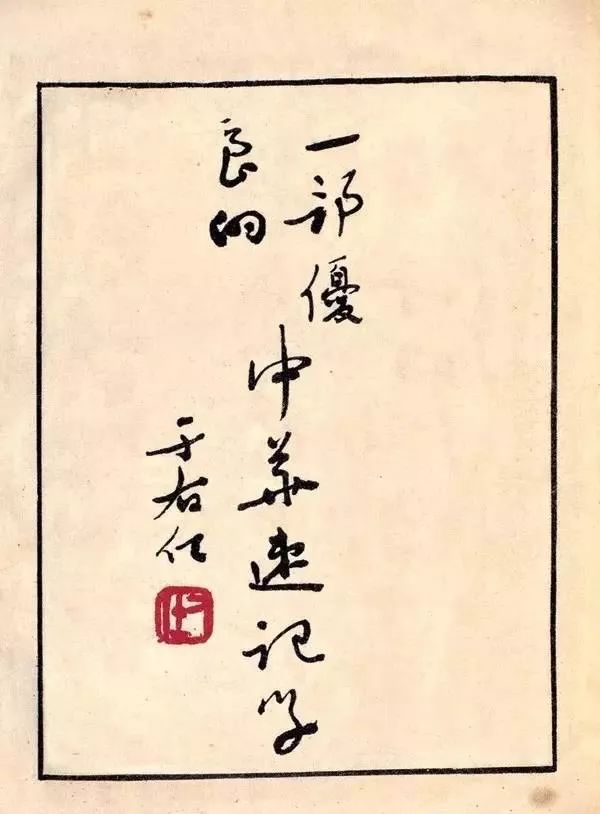 一部優
良的
中華速記学
于右任